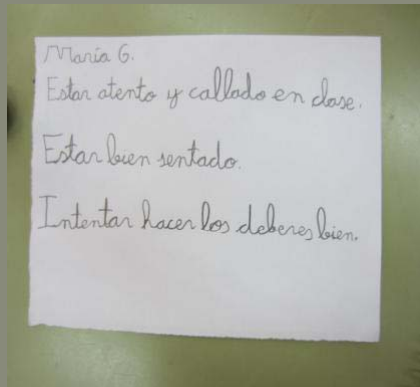 María G.
Estar atento y callado en clase.
Estar bien sentado.
Intentar hacer los deberes bien.